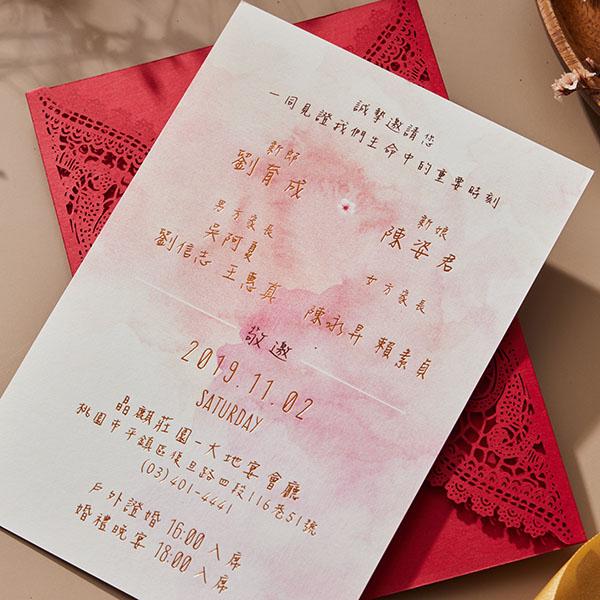 誠摯邀請您
一同見證我們生命中的重要時刻
新郎
劉育成
新娘
陳姿君
男方家長
吳阿夏
劉信志 王惠真
女方家長
陳永昇 賴素貞
敬邀
2019.11.02
SATURDAY
晶麒莊園－大地宴會廳
桃園市平鎮區復旦路四段116巷51號
(03)401-4441
戶外證婚 16:00 入席
婚禮晚宴 18:00 入席